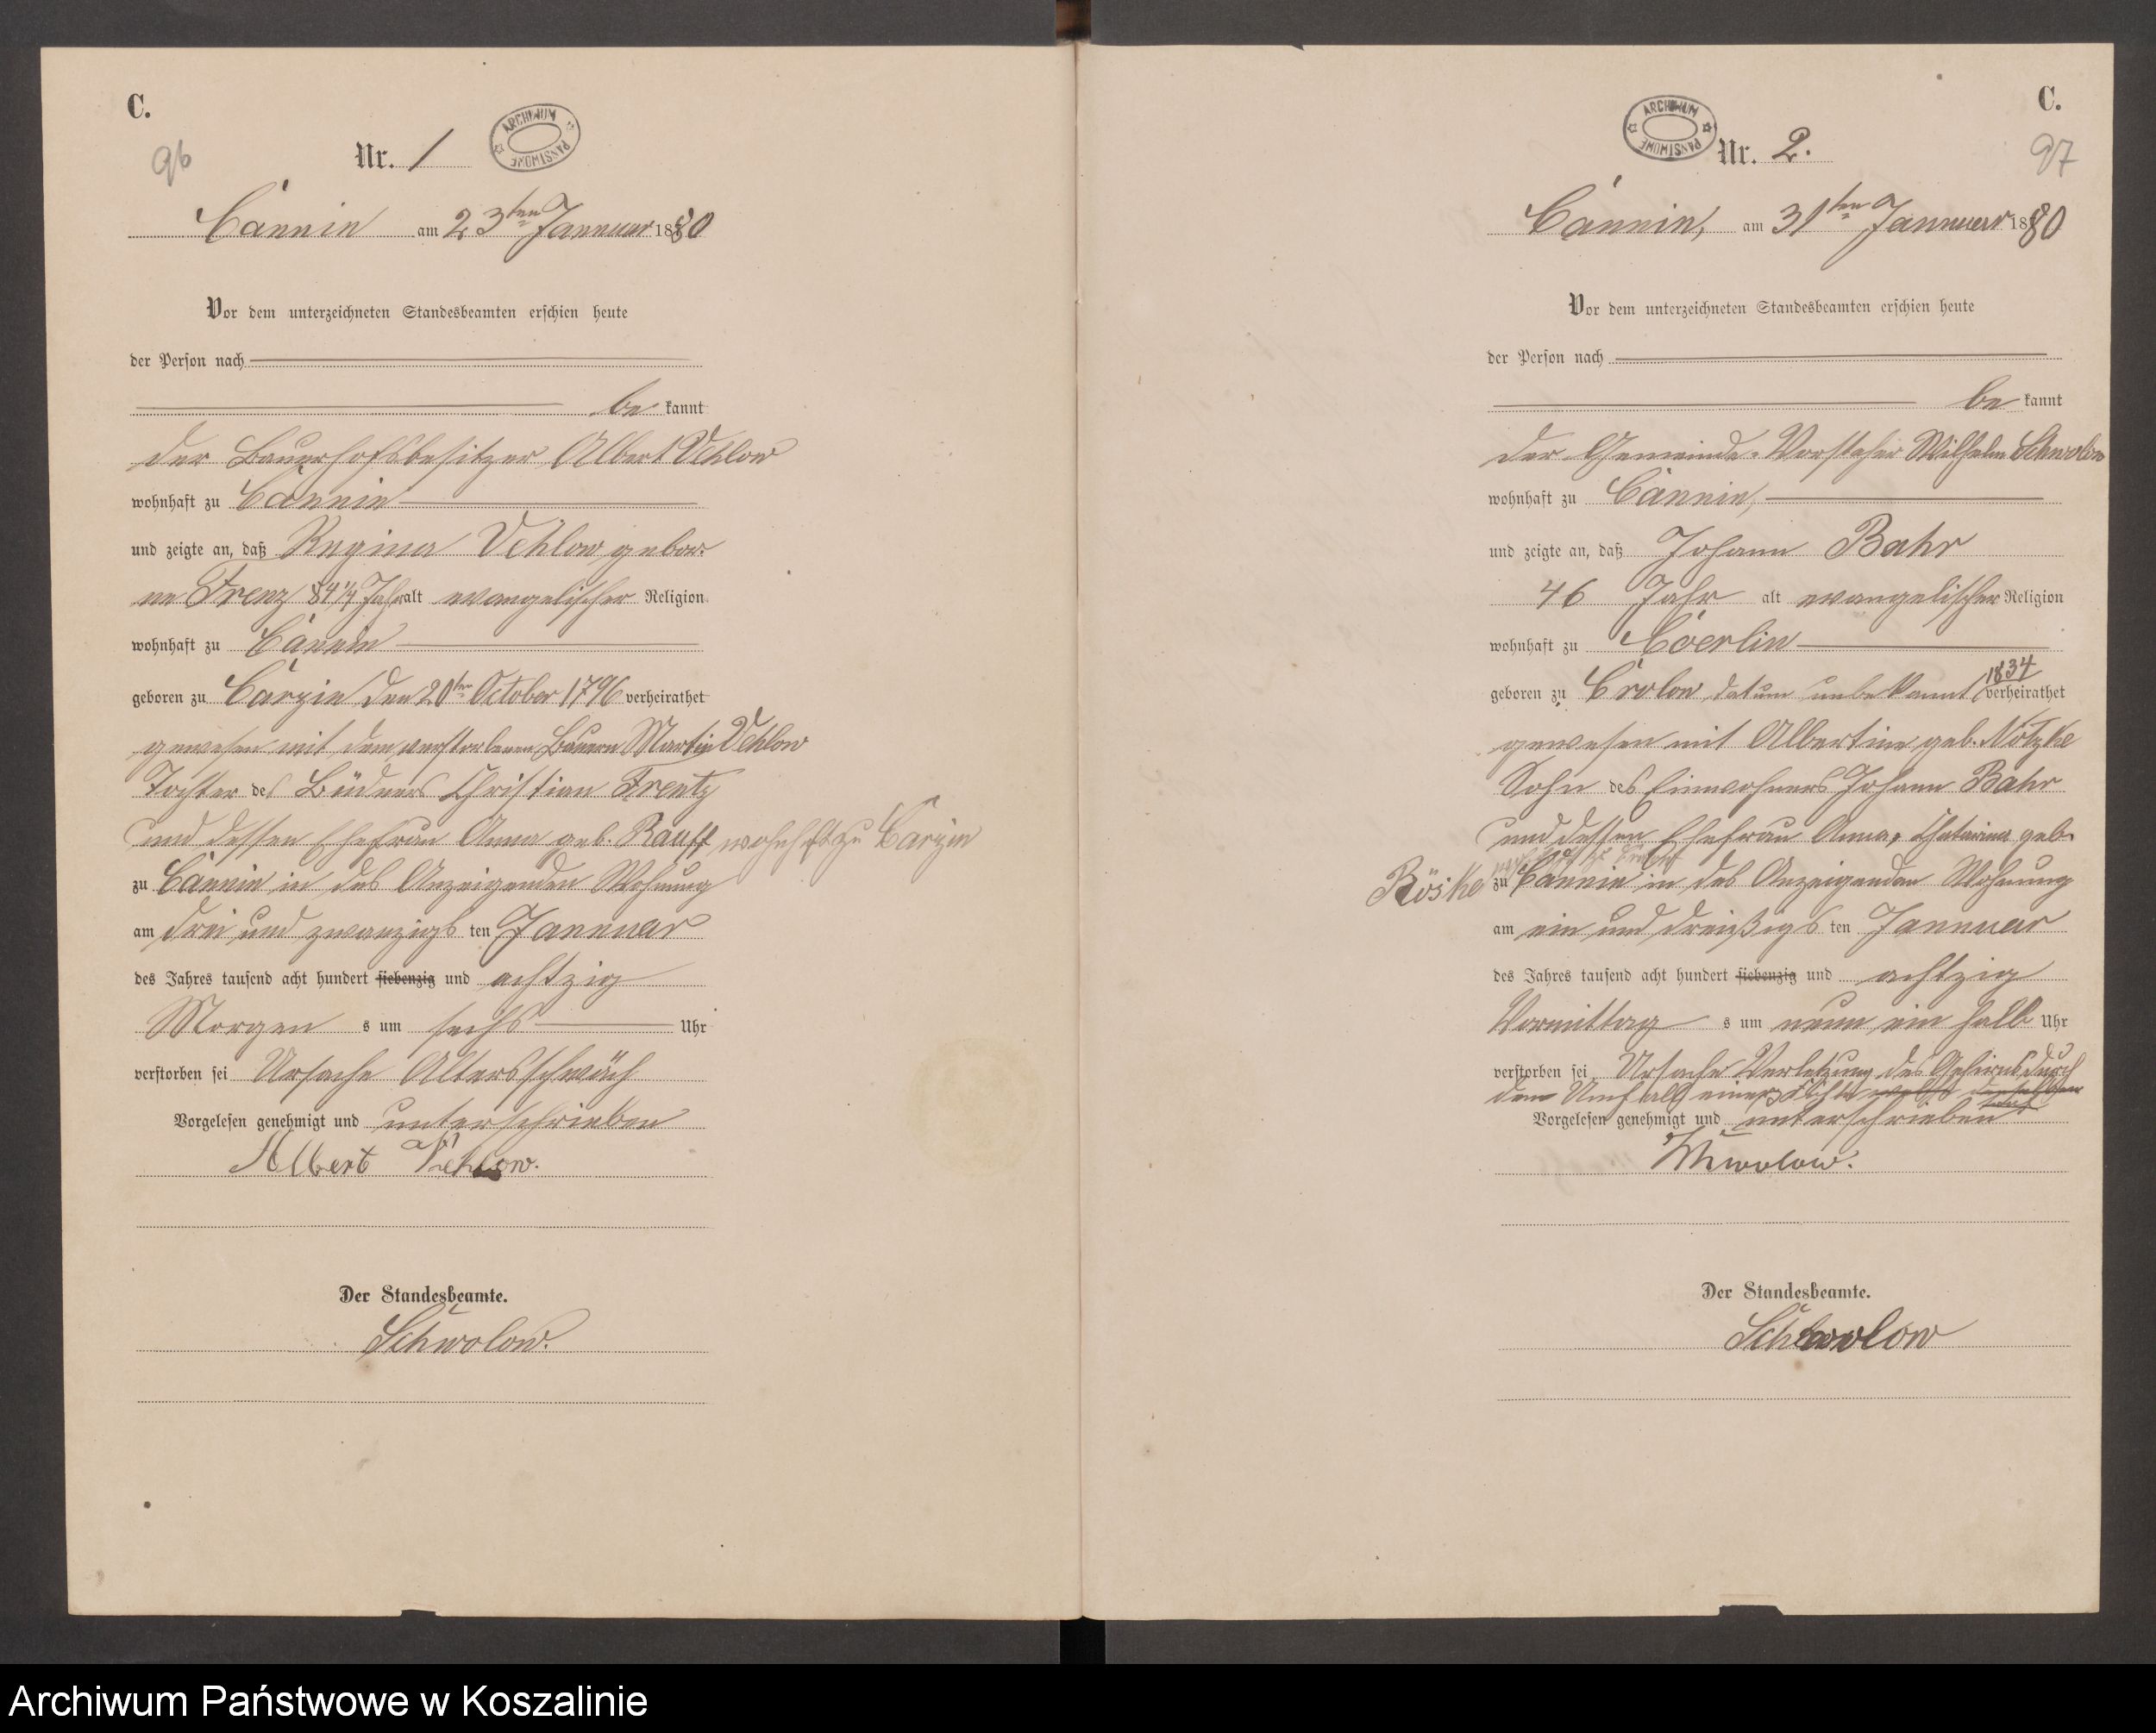 C.
96
Nr. 1
ARCHIWUM PAŃSTWOWE
Cännin am 23ten Januar 1880
Vor dem unterzeichneten Standesbeamten erschien heute
der Person nach
be kannt
der Bauerhofsbesitzer Albert Vehlow
wohnhaft zu Cännin
und zeigte an, daß Regina Vehlow gebor.
ne Frenz 84 1/4 Jahr alt evangelischer Religion
wohnhaft zu Cännin
geboren zu Carzin den 20ten October 1796 verheirathet
gewesen mit dem verstorbenen Bauern Martin Vehlow
Tochter des Büdners Christian Frentz
und dessen Ehefrau Anna geb. Rauff wohnhaft zu Carzin
zu Cännin in des Anzeigenden Wohnung
am drei und zwanzigs ten Januar
des Jahres tausend acht hundert siebenzig und achtzig
Morgen s um sechs Uhr
verstorben sei Ursache Altersschwäch
Vorgelesen genehmigt und unterschrieben
Albert Vehlow.
Der Standesbeamte.
Schwolow.
C.
97
ARCHIWUM PAŃSTWOWE
Nr. 2.
Cännin, am 31ten Januar 1880
Vor dem unterzeichneten Standesbeamten erschien heute
der Person nach
be kannt
der Gemeinde-Vorsteher Wilhelm Schwolow
wohnhaft zu Cännin,
und zeigte an, daß Johann Bahr
46 Jahr alt evangelischer Religion
wohnhaft zu Cöerlin
geboren zu Crolow, datum unbekannt (1834 verheirathet
gewesen mit Albertine geb. Nötzke
Sohn des Einwohners Johann Bahr
und dessen Ehefrau Anna, Chatarina geb.
Röske zu Cännin in des Anzeigenden Wohnung
am ein und dreißigs ten Januar
des Jahres tausend acht hundert siebenzig und achtzig
Vormittag s um neun ein halb Uhr
verstorben sei Ursache Verletzung des Gehirns durch
dem Umfall einer
Vorgelesen genehmigt und unterschrieben
Schwolow.
Der Standesbeamte.
Schwolow
Archiwum Państwowe w Koszalinie